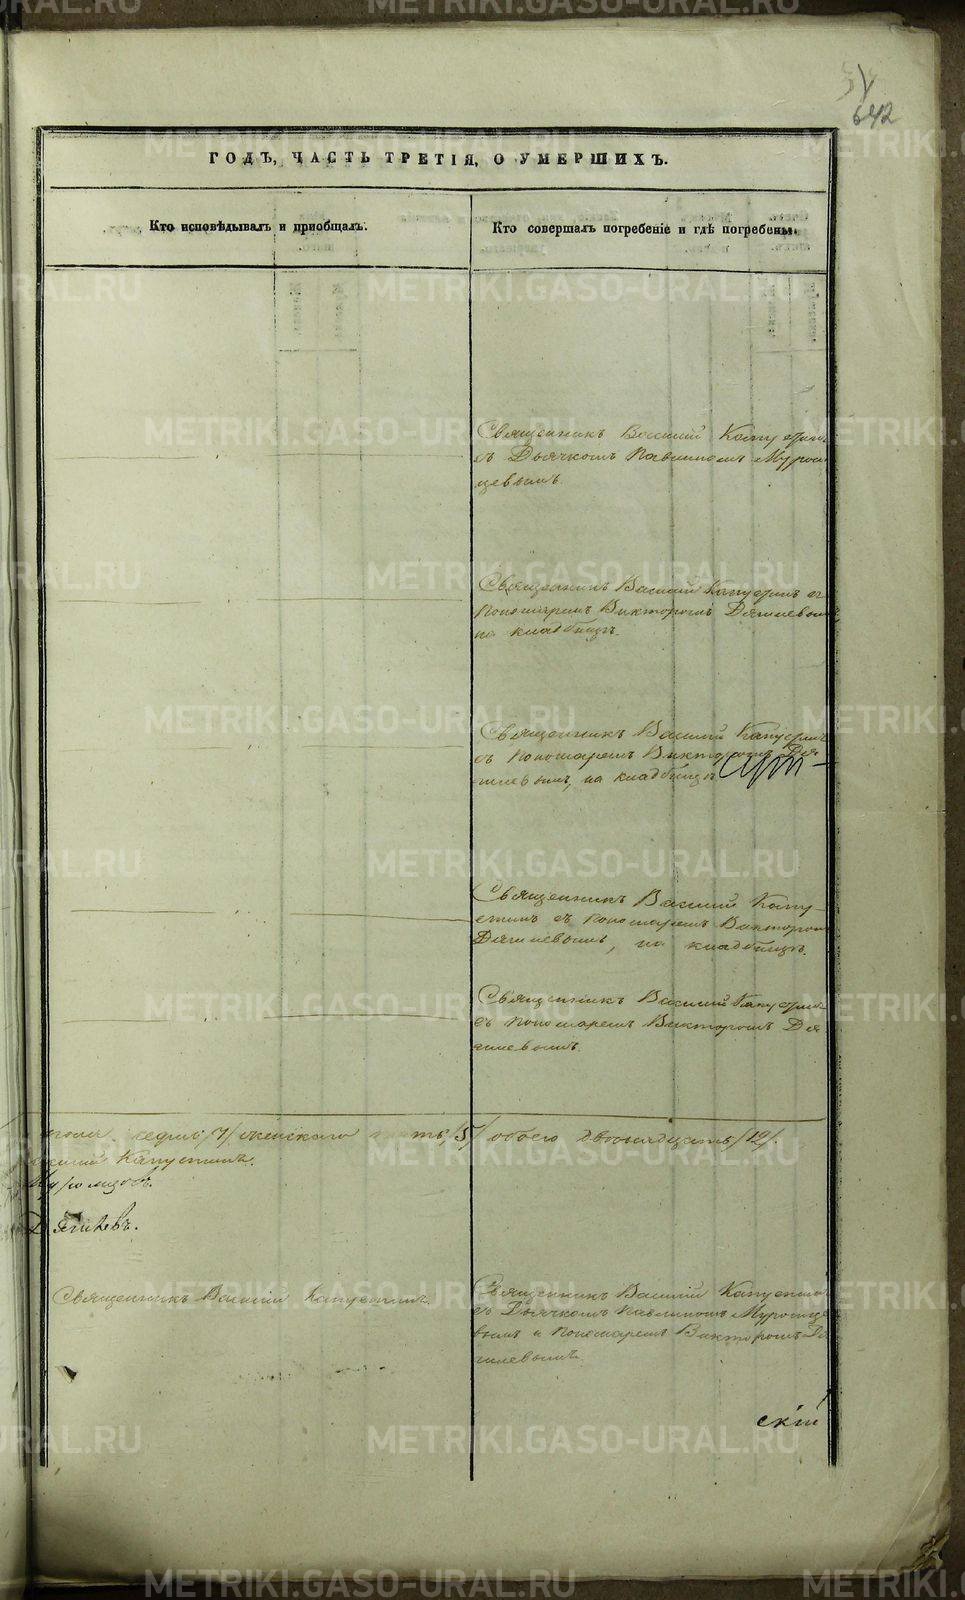 642
ГОДЪ, ЧАСТЬ ТРЕТІЯ, О УМЕРШИХЪ.
Кто исповѣдывалъ и приобщалъ.
Кто совершалъ погребеніе и гдѣ погребены.
Священникъ Василий Капустинъ
съ Дьячкомъ Павлиномъ Муром
цевымъ.
Священникъ Василий Капустинъ съ
Пономаремъ Викторомъ Дягилевымъ
на кладбищѣ.
Священникъ Василий Капустинъ
съ Пономаремъ Викторомъ Дя
гилевымъ, на кладбищѣ
Священникъ Василий Капу-
стинъ съ Пономаремъ Викторомъ
Дягилевымъ, на кладбищѣ.
Священникъ Василий Капустинъ
съ Пономаремъ Викторомъ Дя
гилевымъ.
пола седмь /7/ женскаго пять /5/ обоего двенадцать /12/.
Василий Капустинъ.
Муромцовъ.
Дягилевъ.
Священникъ Василий Капустинъ.
Священникъ Василий Капустинъ
съ Дьячкомъ Павлиномъ Муромце
вымъ и Пономаремъ Викторомъ Дя
гилевымъ.
скій
METRIKI.GASO-URAL.RU